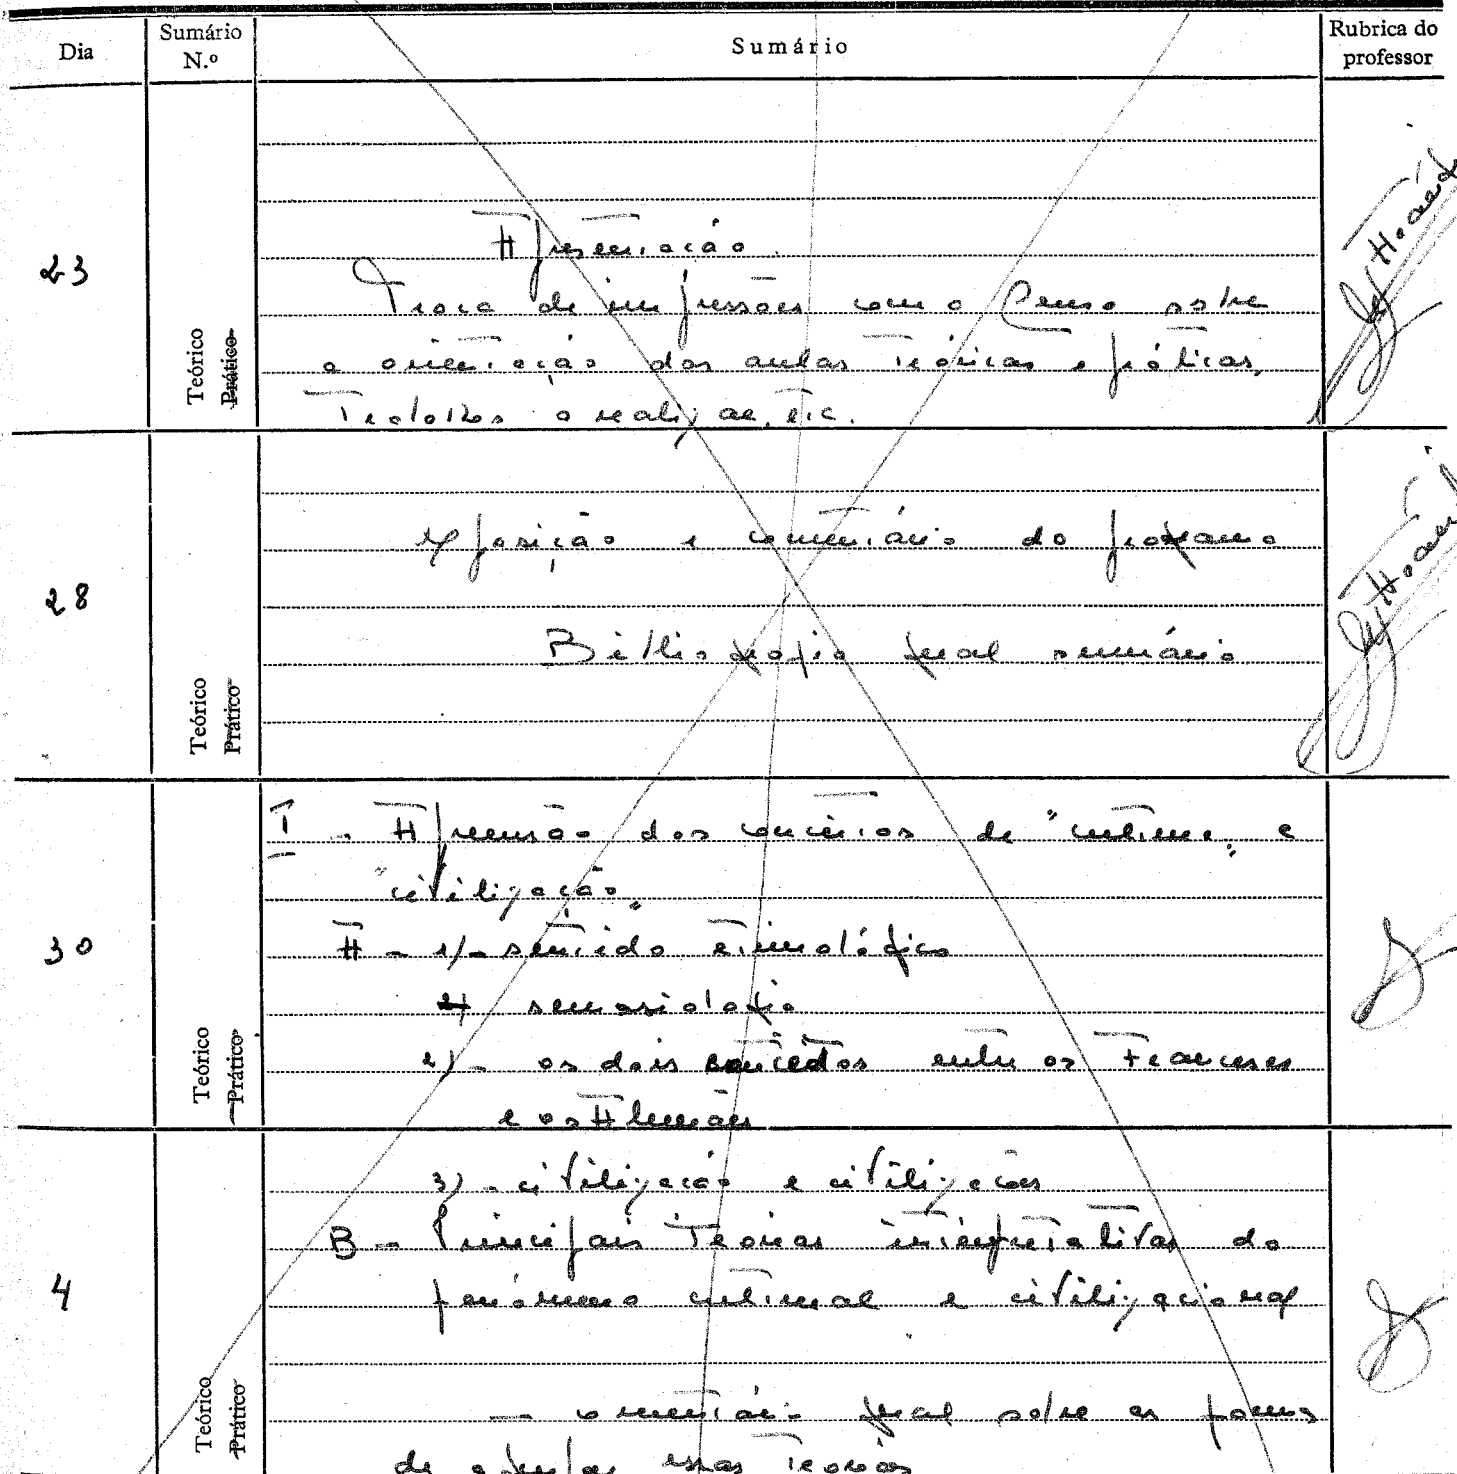 Dia
Sumário N.º
Sumário
Rubrica do professor
23
Teórico
Prático
Apresentação.
Troca de impressões com o Curso sobre
a orientação das aulas teóricas e práticas,
trabalhos a realizar, etc.
28
Teórico
Prático
Exposição e comentário do programa
Bibliografia geral sumária
30
Teórico
Prático
I - Apreensão dos conceitos de "cultura" e
"civilização"
A - 1) - sentido etimológico
semasiologia
2) - os dois conceitos entre os Franceses
e os Alemães
4
Teórico
Prático
3) - civilização e civilizações
B - Principais teorias interpretativas do
fenómeno cultural e civilizacional
- comentário geral sobre as formas
de essas teorias